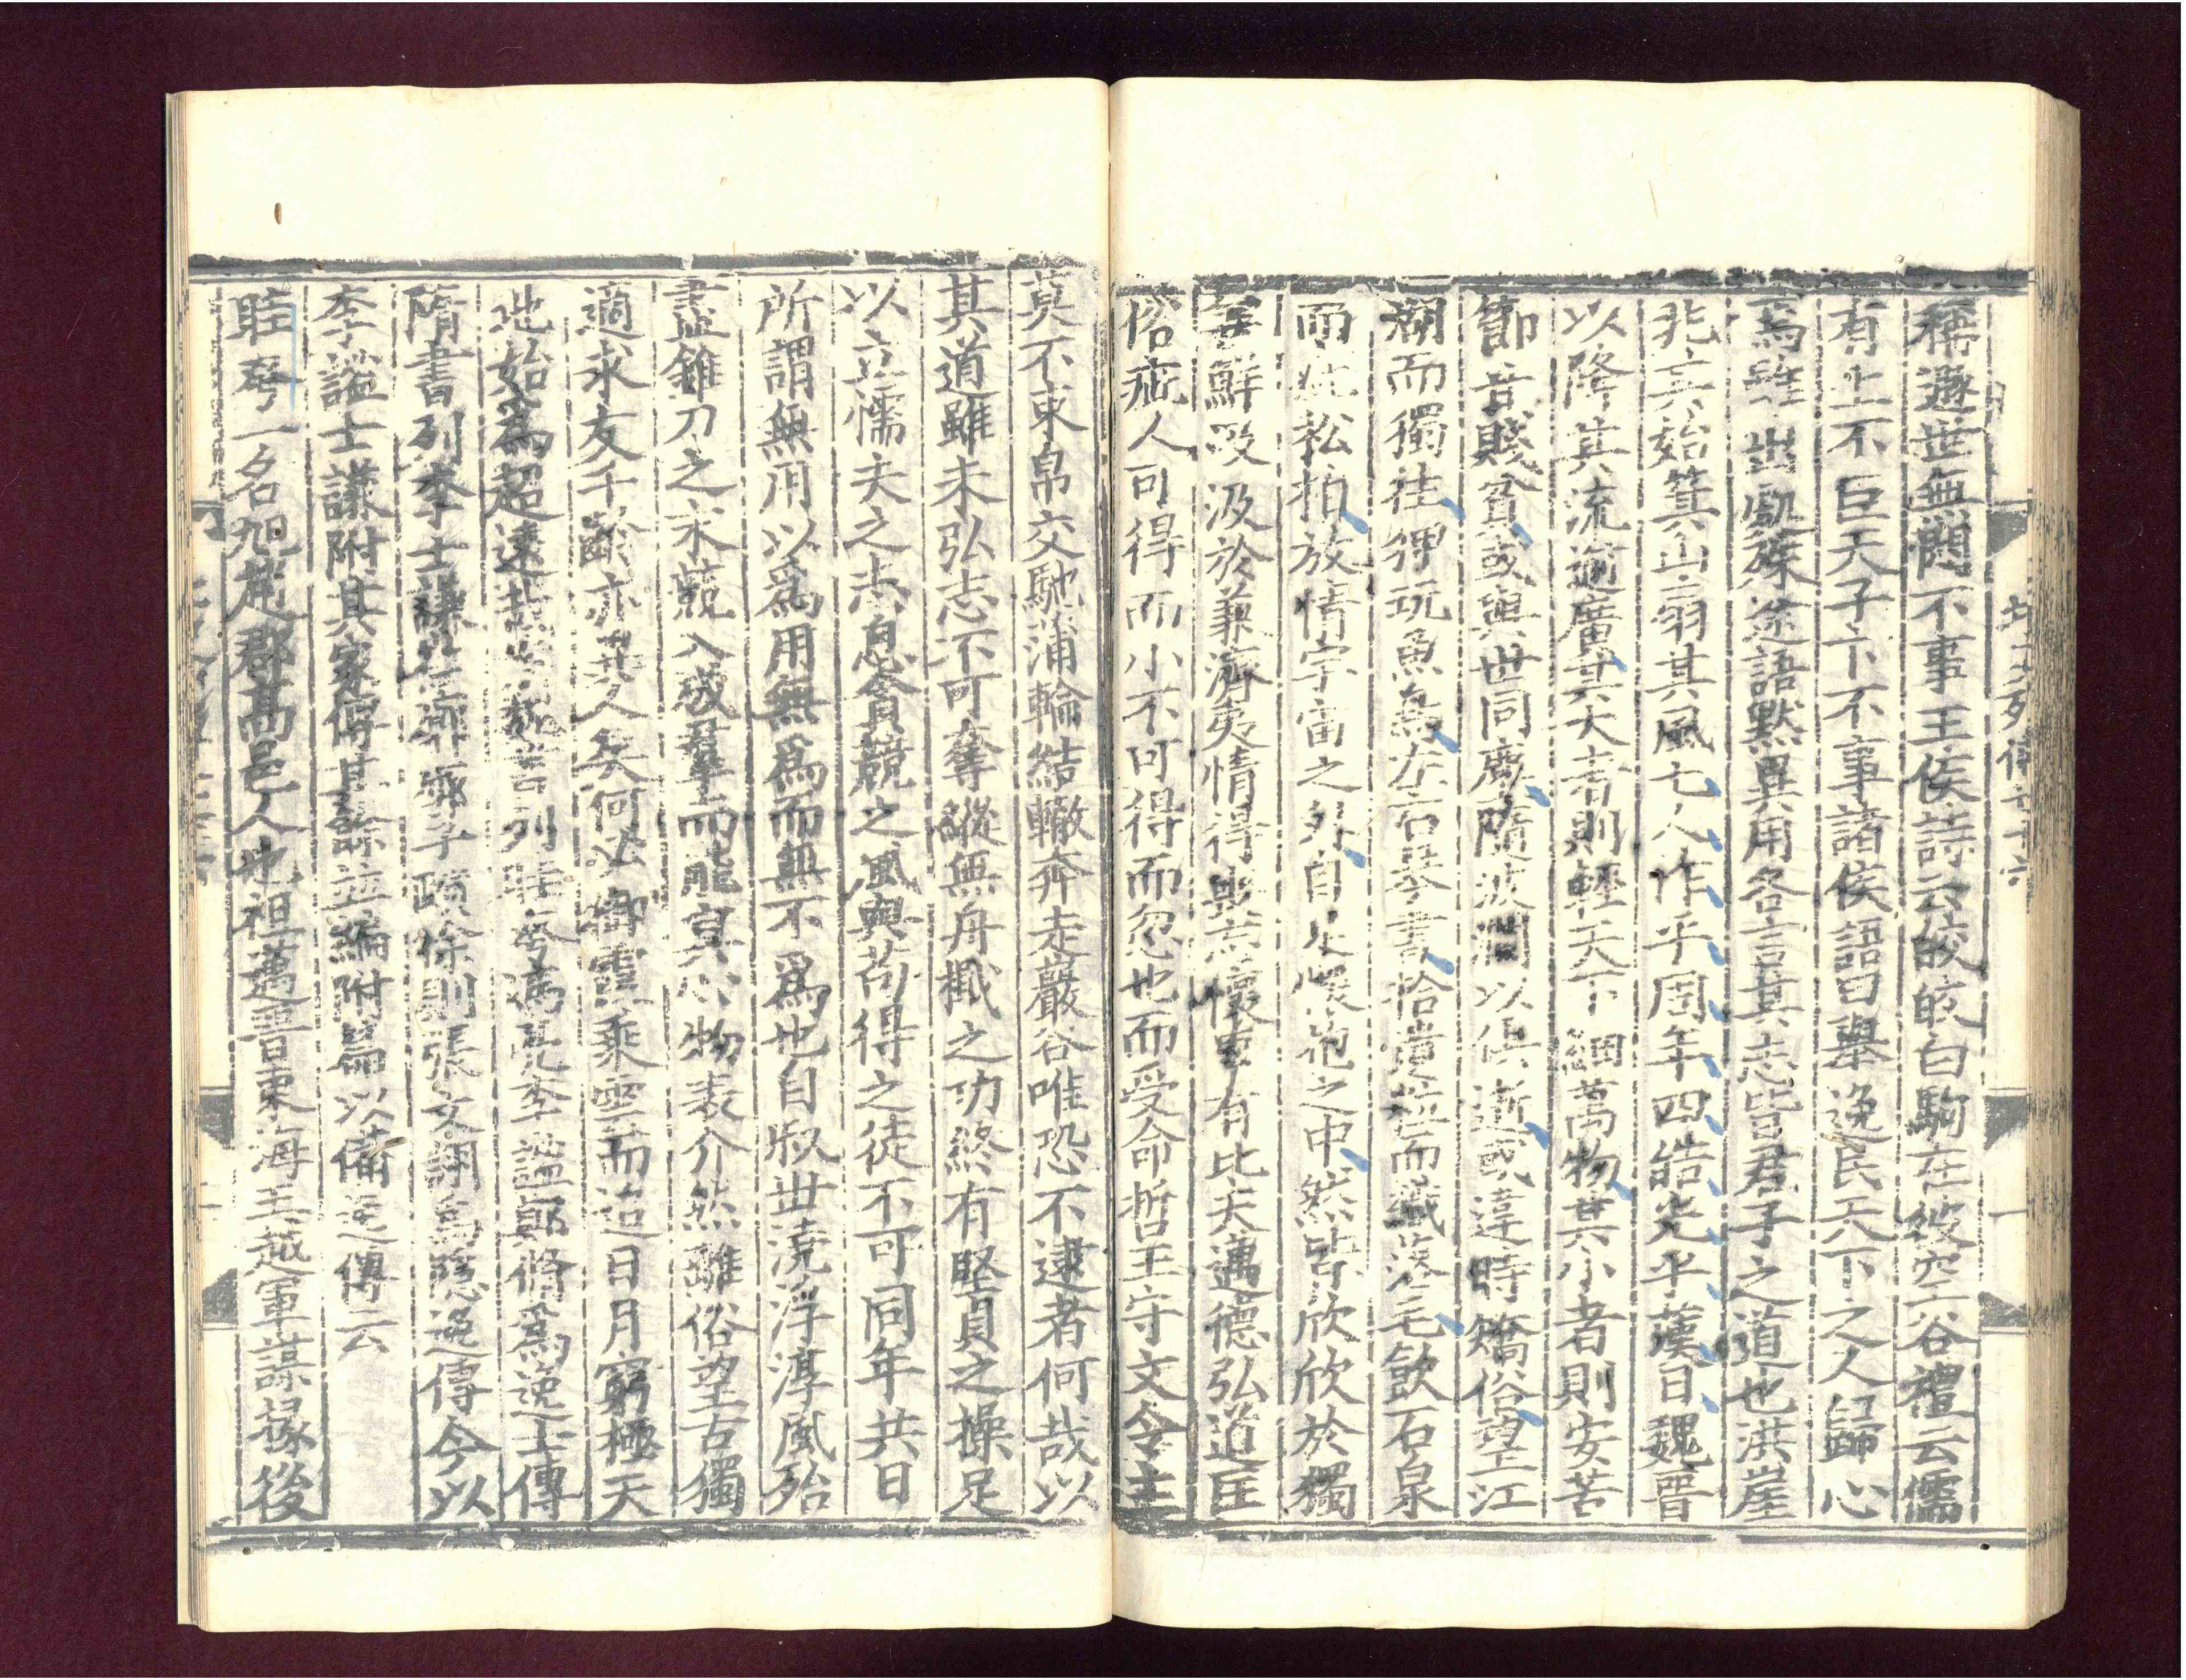 稱遯世無悶不事王侯詩云皎皎白駒在彼空谷禮云儒
有上不臣天子下不事諸侯語曰舉逸民天下之人歸心
焉雖出處殊途語默異用各言其志皆君子之道也洪崖
兆其始箕山扇其風七人作乎周年四皓光乎漢日魏晉
以降其流逾廣其大者則輕天下細萬物其小者則安苦
節甘賤貧或與世同塵隨波瀾以俱逝或違時矯俗望江
湖而獨往狎玩魚鳥左右琴書拾遺粒而織落毛飲石泉
而庇松柏放情宇宙之外自足懷抱之中然皆欣欣於獨
善鮮汲汲於兼濟夷情得喪忘懷累有比夫邁德弘道匡
俗庇人可得而小不可得而忽也而受命哲王守文令主
莫不束帛交馳蒲輪結轍奔走巖谷唯恐不逮者何哉以
其道雖未弘志不可奪縱無舟檝之功終有堅貞之操足
以立懦夫之志息貪競之風與苟得之徒不可同年共日
所謂無用以爲用無爲而無不爲也自叔世澆浮淳風殆
盡錐刀之末競入成羣而能冥心物表介然離俗望古獨
適求友千齡亦異人矣何必御霞乘雲而追日月窮極天
地始爲超遠哉案魏書列眭夸馮亮李謐鄭脩爲逸士傳
隋書列李士謙崔廓廓子賾徐則張文詡爲隱逸傳今以
李謐士謙附其家傳其餘並編附篇以備隱逸傳云
眭夸一名旭趙郡高邑人也祖邁晉東海王越軍謀掾後